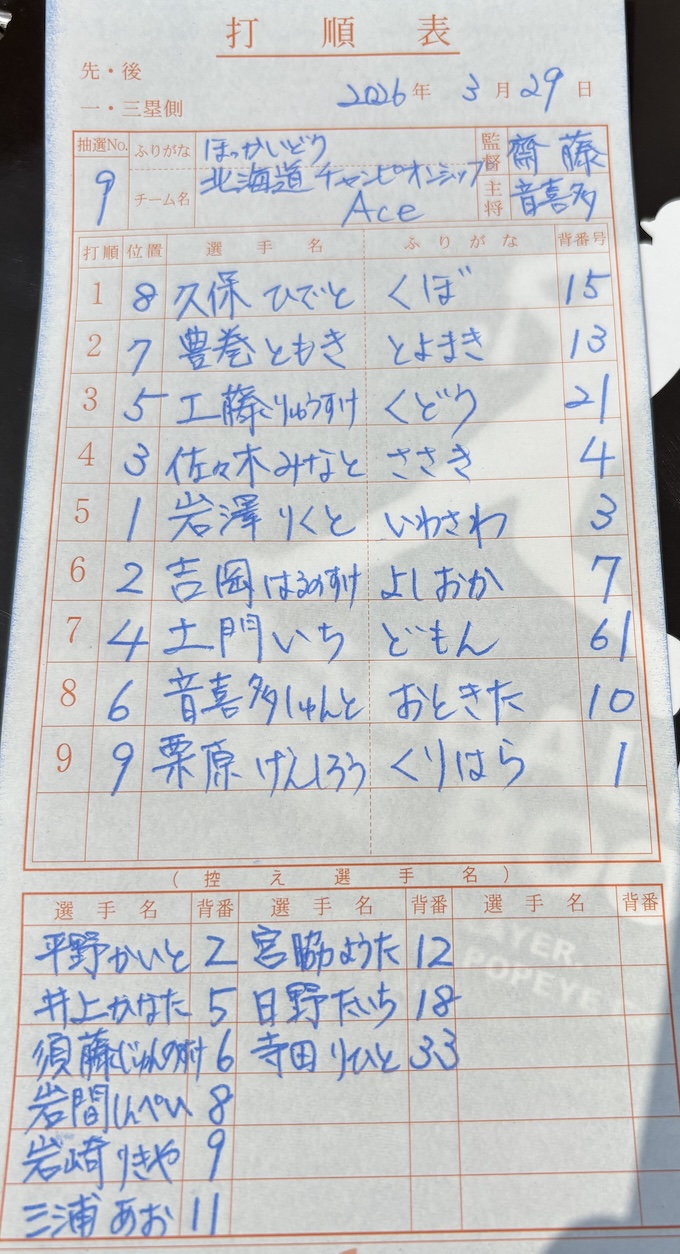 打順表
先・後
一・三塁側
2026年 3月 29日
抽選No. 9
ふりがな ほっかいどう
チーム名 北海道チャンピオンシップ
Ace
監督 齋藤
主将 音喜多
打順 位置 選手名 ふりがな 背番号
1 8 久保 ひでと くぼ 15
2 7 豊巻 ともき とよまき 13
3 5 工藤 りゅうすけ くどう 21
4 3 佐々木 みなと ささき 4
5 1 岩澤 りくと いわさわ 3
6 2 吉岡 はるのすけ よしおか 7
7 4 土門 いち どもん 61
8 6 音喜多 しゅんと おときた 10
9 9 栗原 げんしろう くりはら 1
(控え選手名)
選手名 背番 選手名 背番 選手名 背番
平野かいと 2 宮脇ようた 12
井上かなた 5 日野たいち 18
須藤じゅんのすけ 6 寺田りひと 33
岩間しんぺい 8
岩崎りきや 9
三浦あお 11
AYER,
POPEYE